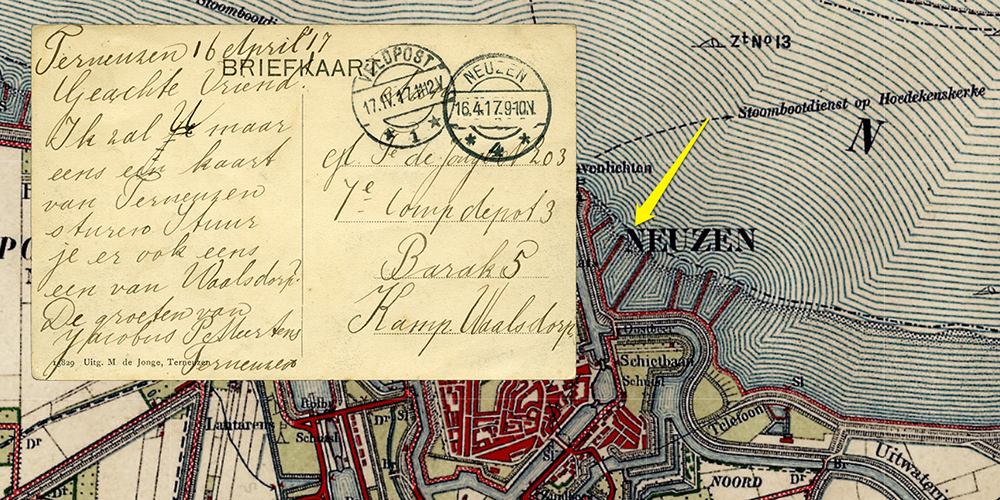 Terneuzen 16 April '17
BRIEFKAART
Geachte Vriend.
Ik zal U maar
eens een kaart
van Terneuzen
sturen Stuur
je er ook eens
een van Waalsdorp.
De groeten van
Jacobus P. Meertens
Terneuzen
14829 Uitg. M de Jonge, Terneuzen
VELDPOST
17.IV.17.11-12V
1
NEUZEN
16.4.17.9-10N.
4
de 203
7e Comp depot 3
Barak 5
Kamp Waalsdorp
Stoombootdien
Zt No 13
Stoombootdienst op Hoedekenskerke
N
Havenlichten
NEUZEN
Schietbaan
Schutsl
Sl
Tulefoon
Uitwater
NOORD
Br
Lantarens
Schutsl
Dr
Dr
Dr
Sl
Sl
PO